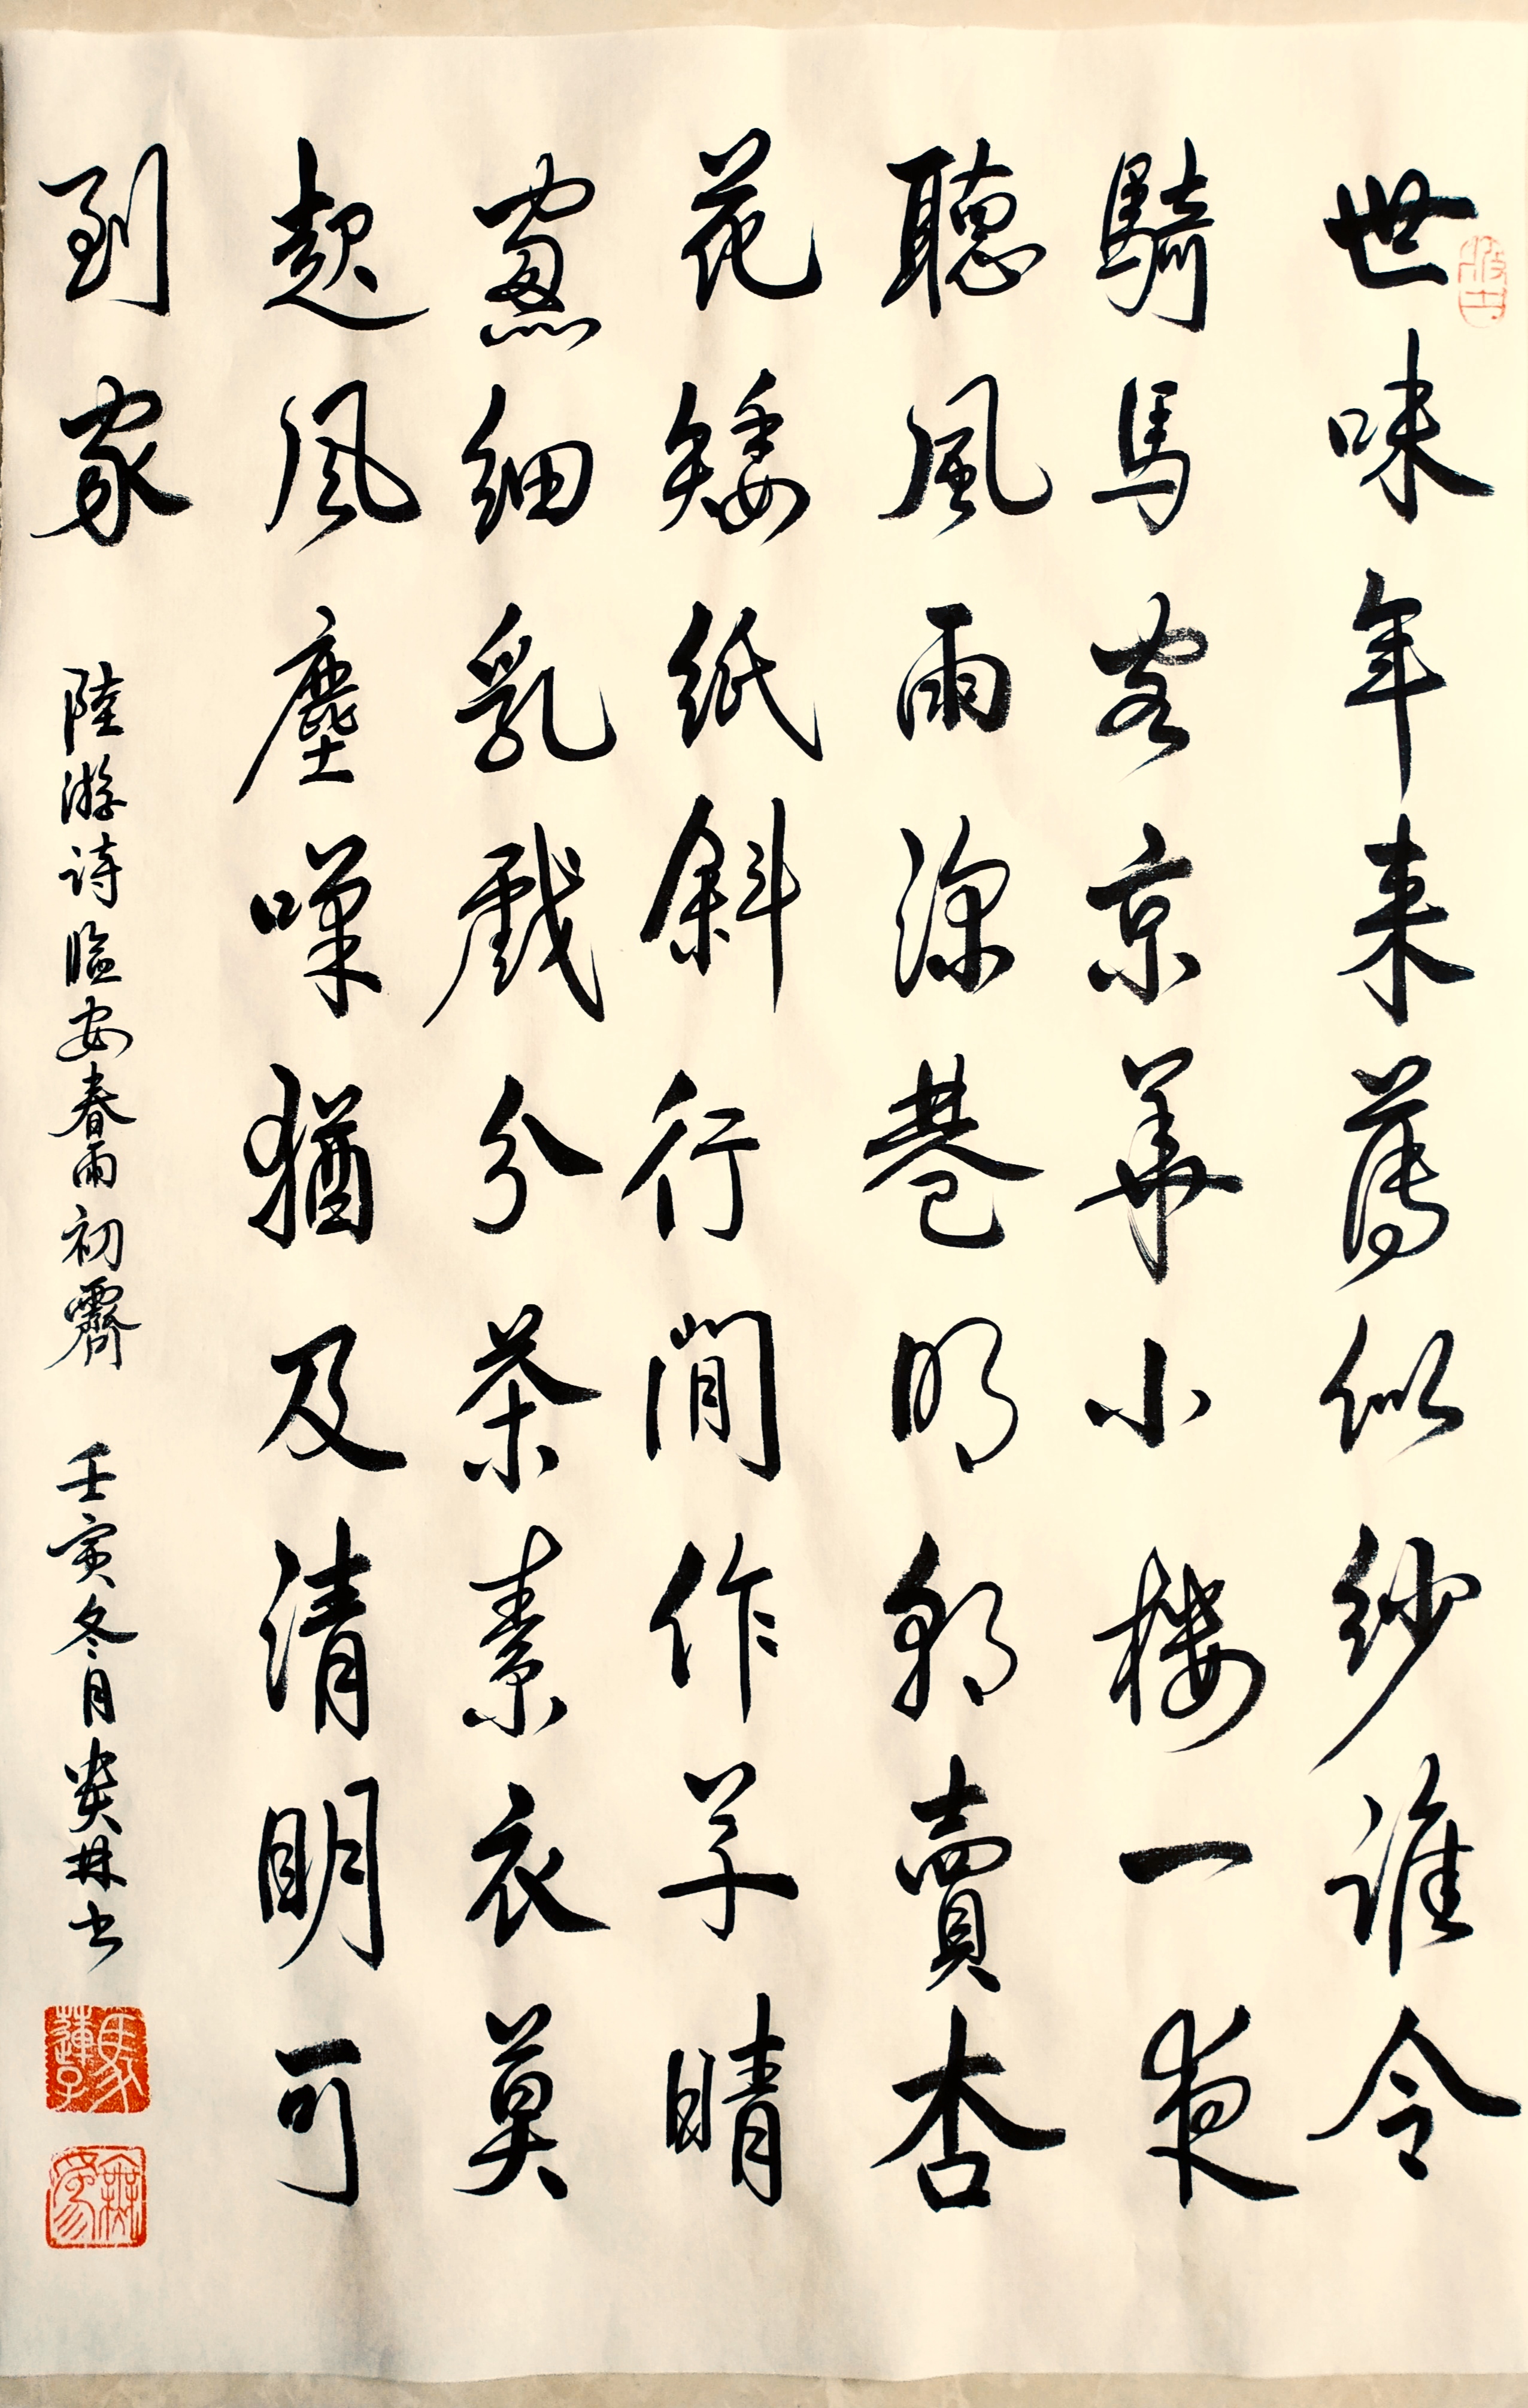 世味年来薄似紗誰令
騎馬客京華小樓一夜
聽風雨深巷明朝賣杏
花矮紙斜行閒作草晴
窻細乳戲分茶素衣莫
起風塵嘆猶及清明可
到家 陸游詩臨安春雨初霽 壬寅冬月林书